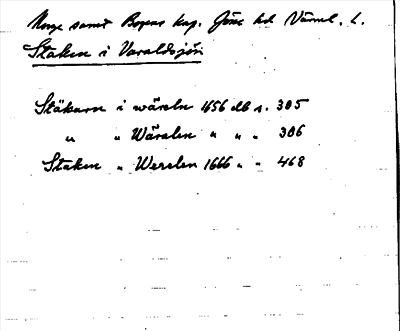 Norge samt Bogens kap. Jösse hd Värml. l.
Stäken i Varaldsjön
Stäkarn i wäraln 1656 db s. 305
" " Wäralen " " " 306
Staken " Werelen 1666 " " 468